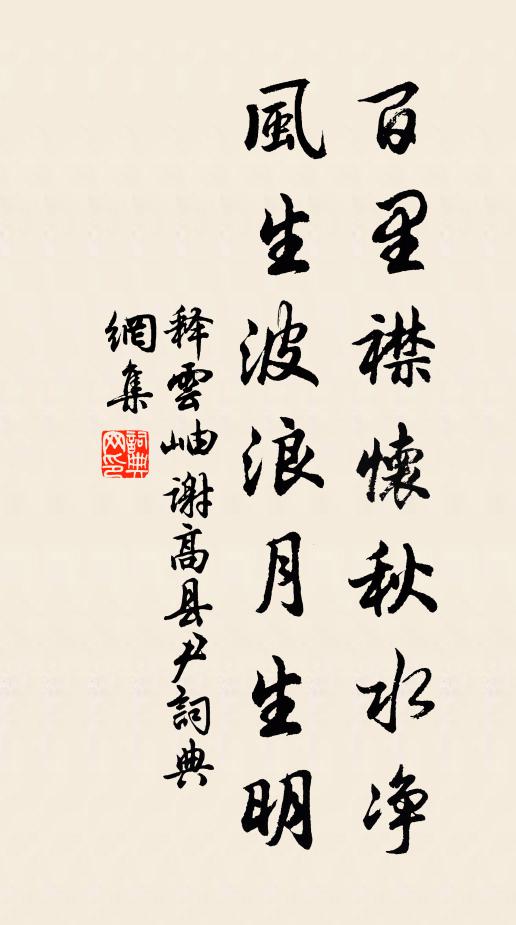 百里襟懷秋水净
風生波浪月生明
释雲岫謝高县尹詞典
網集
詞典
网印